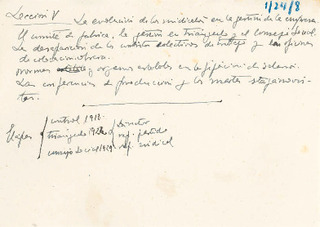 1/24/8
Lección V La evolución de los sindicatos en la gestión de la empresa
El comité de fábrica, la gestión en triángulo y el consejo social.
La desaparición de los contratos colectivos de trabajo y las opciones
de colocación obrera.
normas y organos estatales en la fijación del salario.
Las conferencias de producción y los
Etapas
control 1918-
triángulo 1922
consejo social 1929
Director
rep. partido
rep. sindical